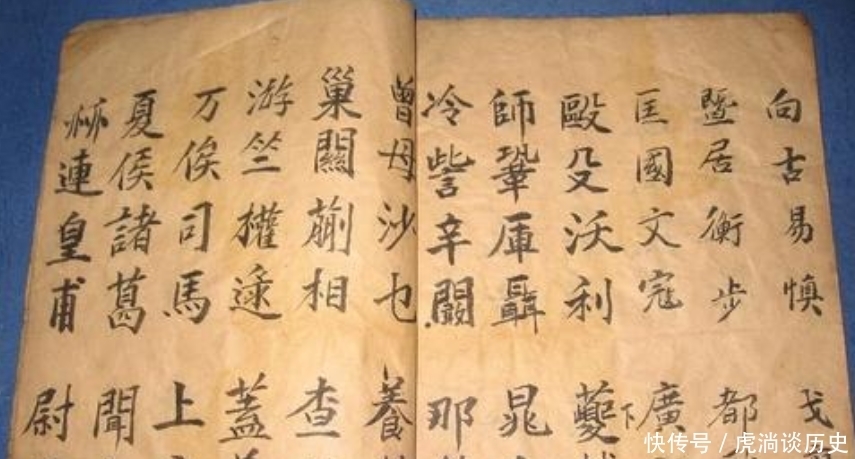 向古易慎戈
暨居衡步都
匡國文寇廣
下
毆殳沃利蘷
師鞏厙聶晁
冷訾辛闞那
曾母沙乜養
巢關蒯相查
游竺權逯蓋
万俟司馬上
夏侯諸葛聞
赫連皇甫尉
快传号/虎淌谈历史